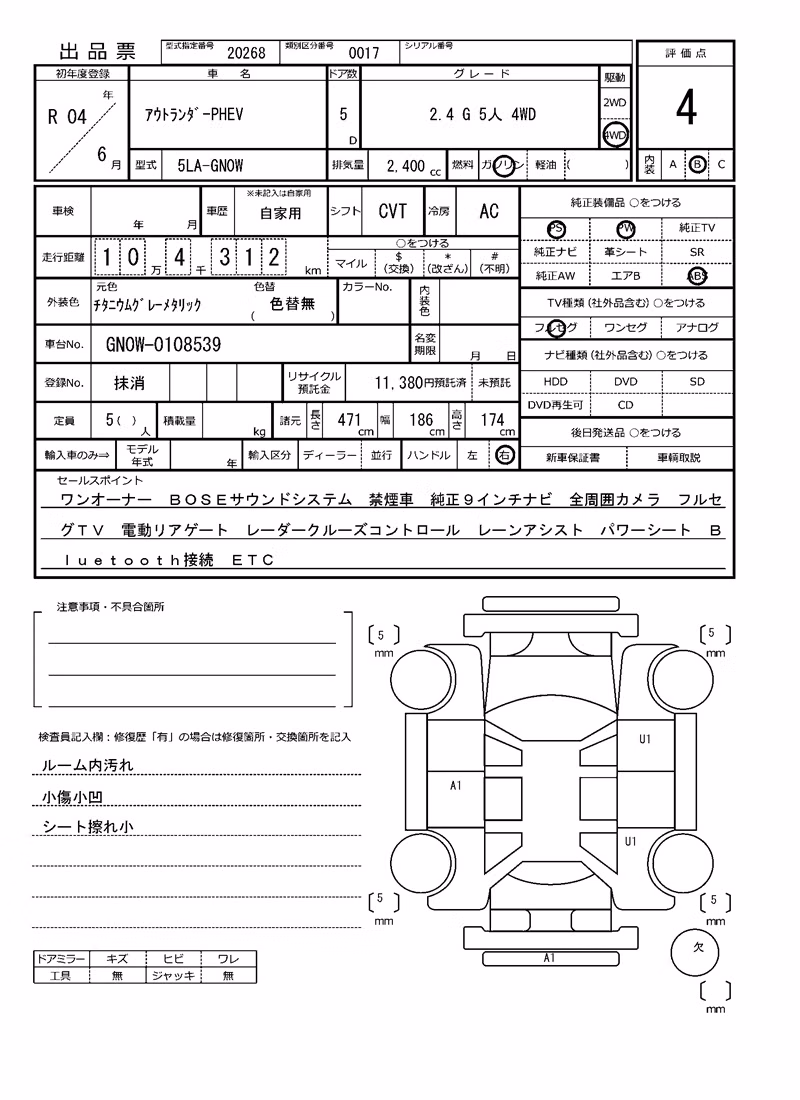 出品票 型式指定番号 20268 類別区分番号 0017 シリアル番号
評価点
初年度登録 車名 ドア数 グレード 駆動
R 04 年 6 月 ｱｳﾄﾗﾝﾀﾞｰPHEV 5 D 2.4 G 5人 4WD 2WD 4WD
4
型式 5LA-GN0W 排気量 2,400 cc 燃料 ガソリン 軽油 ( )
内装 A B C
車検 年 月 車歴 ※未記入は自家用 自家用 シフト CVT 冷房 AC
純正装備品 ○をつける
PS PW 純正TV
純正ナビ 革シート SR
純正AW エアB ABS
走行距離 10万4千312km ○をつける
マイル $(交換) *(改ざん) #(不明)
外装色 元色 ﾁﾀﾆｳﾑｸﾞﾚｰﾒﾀﾘｯｸ 色替 ( 色替無 ) カラーNo. 内装色
TV種類(社外品含む)○をつける
フルセグ ワンセグ アナログ
車台No. GN0W-0108539 名変期限 月 日
ナビ種類(社外品含む)○をつける
HDD DVD SD
DVD再生可 CD
登録No. 抹消 リサイクル預託金 11,380円預託済 未預託
定員 5( )人 積載量 kg 諸元 長さ 471cm 幅 186cm 高さ 174cm
後日発送品 ○をつける
新車保証書 車輌取説
輸入車のみ⇒ モデル年式 年 輸入区分 ディーラー 並行 ハンドル 左 右
セールスポイント
ワンオーナー　ＢＯＳＥサウンドシステム　禁煙車　純正９インチナビ　全周囲カメラ　フルセ
グＴＶ　電動リアゲート　レーダークルーズコントロール　レーンアシスト　パワーシート　Ｂ
ｌｕｅｔｏｏｔｈ接続　ＥＴＣ
注意事項・不具合箇所
検査員記入欄：修復歴「有」の場合は修復箇所・交換箇所を記入
ルーム内汚れ
小傷小凹
シート擦れ小
ドアミラー キズ ヒビ ワレ
工具 無 ジャッキ 無
5 mm
5 mm
U1
A1
U1
5 mm
5 mm
A1
欠
mm